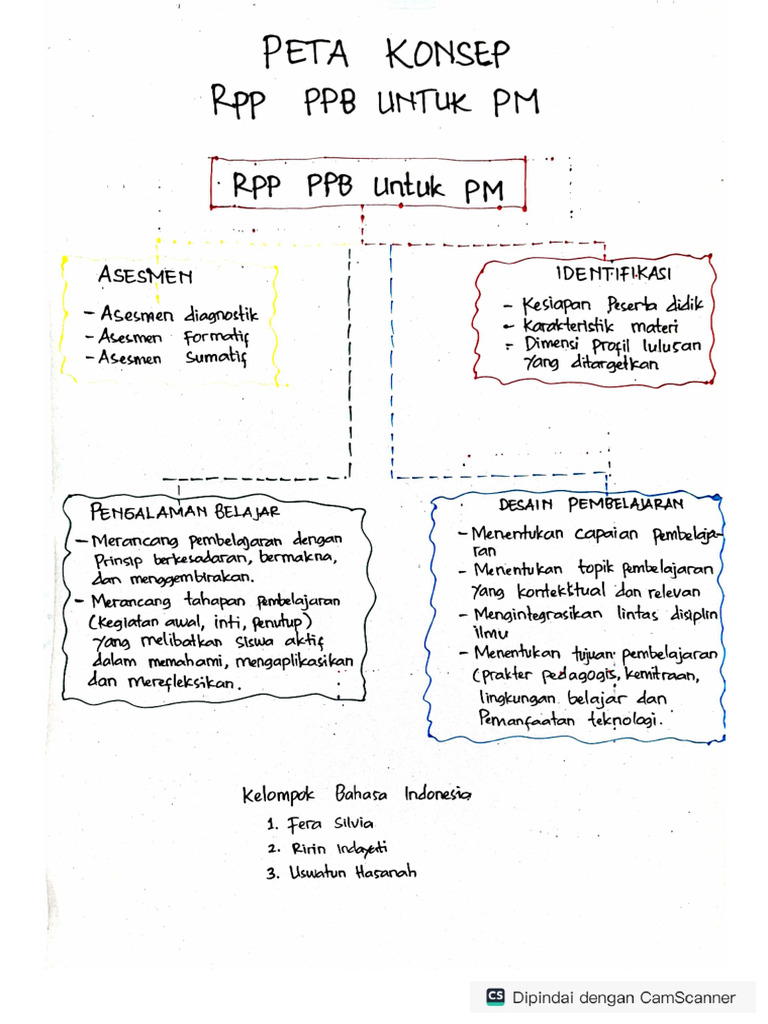 PETA KONSEP
RPP PPB UNTUK PM
RPP PPB untuk PM
ASESMEN
- Asesmen diagnostik
- Asesmen Formatif
- Asesmen Sumatif
IDENTIFIKASI
- Kesiapan Peserta didik
- Karakteristik materi
- Dimensi Profil lulusan
yang ditargetkan
PENGALAMAN BELAJAR
- Merancang pembelajaran dengan
Prinsip berkesadaran, bermakna,
dan menggembirakan.
- Merancang tahapan pembelajaran
(kegiatan awal, inti, penutup)
yang melibatkan siswa aktif
dalam memahami, mengaplikasikan
dan merefleksikan.
DESAIN PEMBELAJARAN
- Menentukan capaian pembelaja-
ran
- Menentukan topik pembelajaran
yang kontekktual dan relevan
- Mengintegrasikan lintas disiplin
ilmu
- Menentukan tujuan pembelajaran
(prakter pedagogis, kemitraan,
lingkungan belajar dan
Pemanfaatan teknologi.
Kelompok Bahasa Indonesia
1. Fera Silvia
2. Ririn Indayati
3. Uswatun Hasanah
CS Dipindai dengan CamScanner